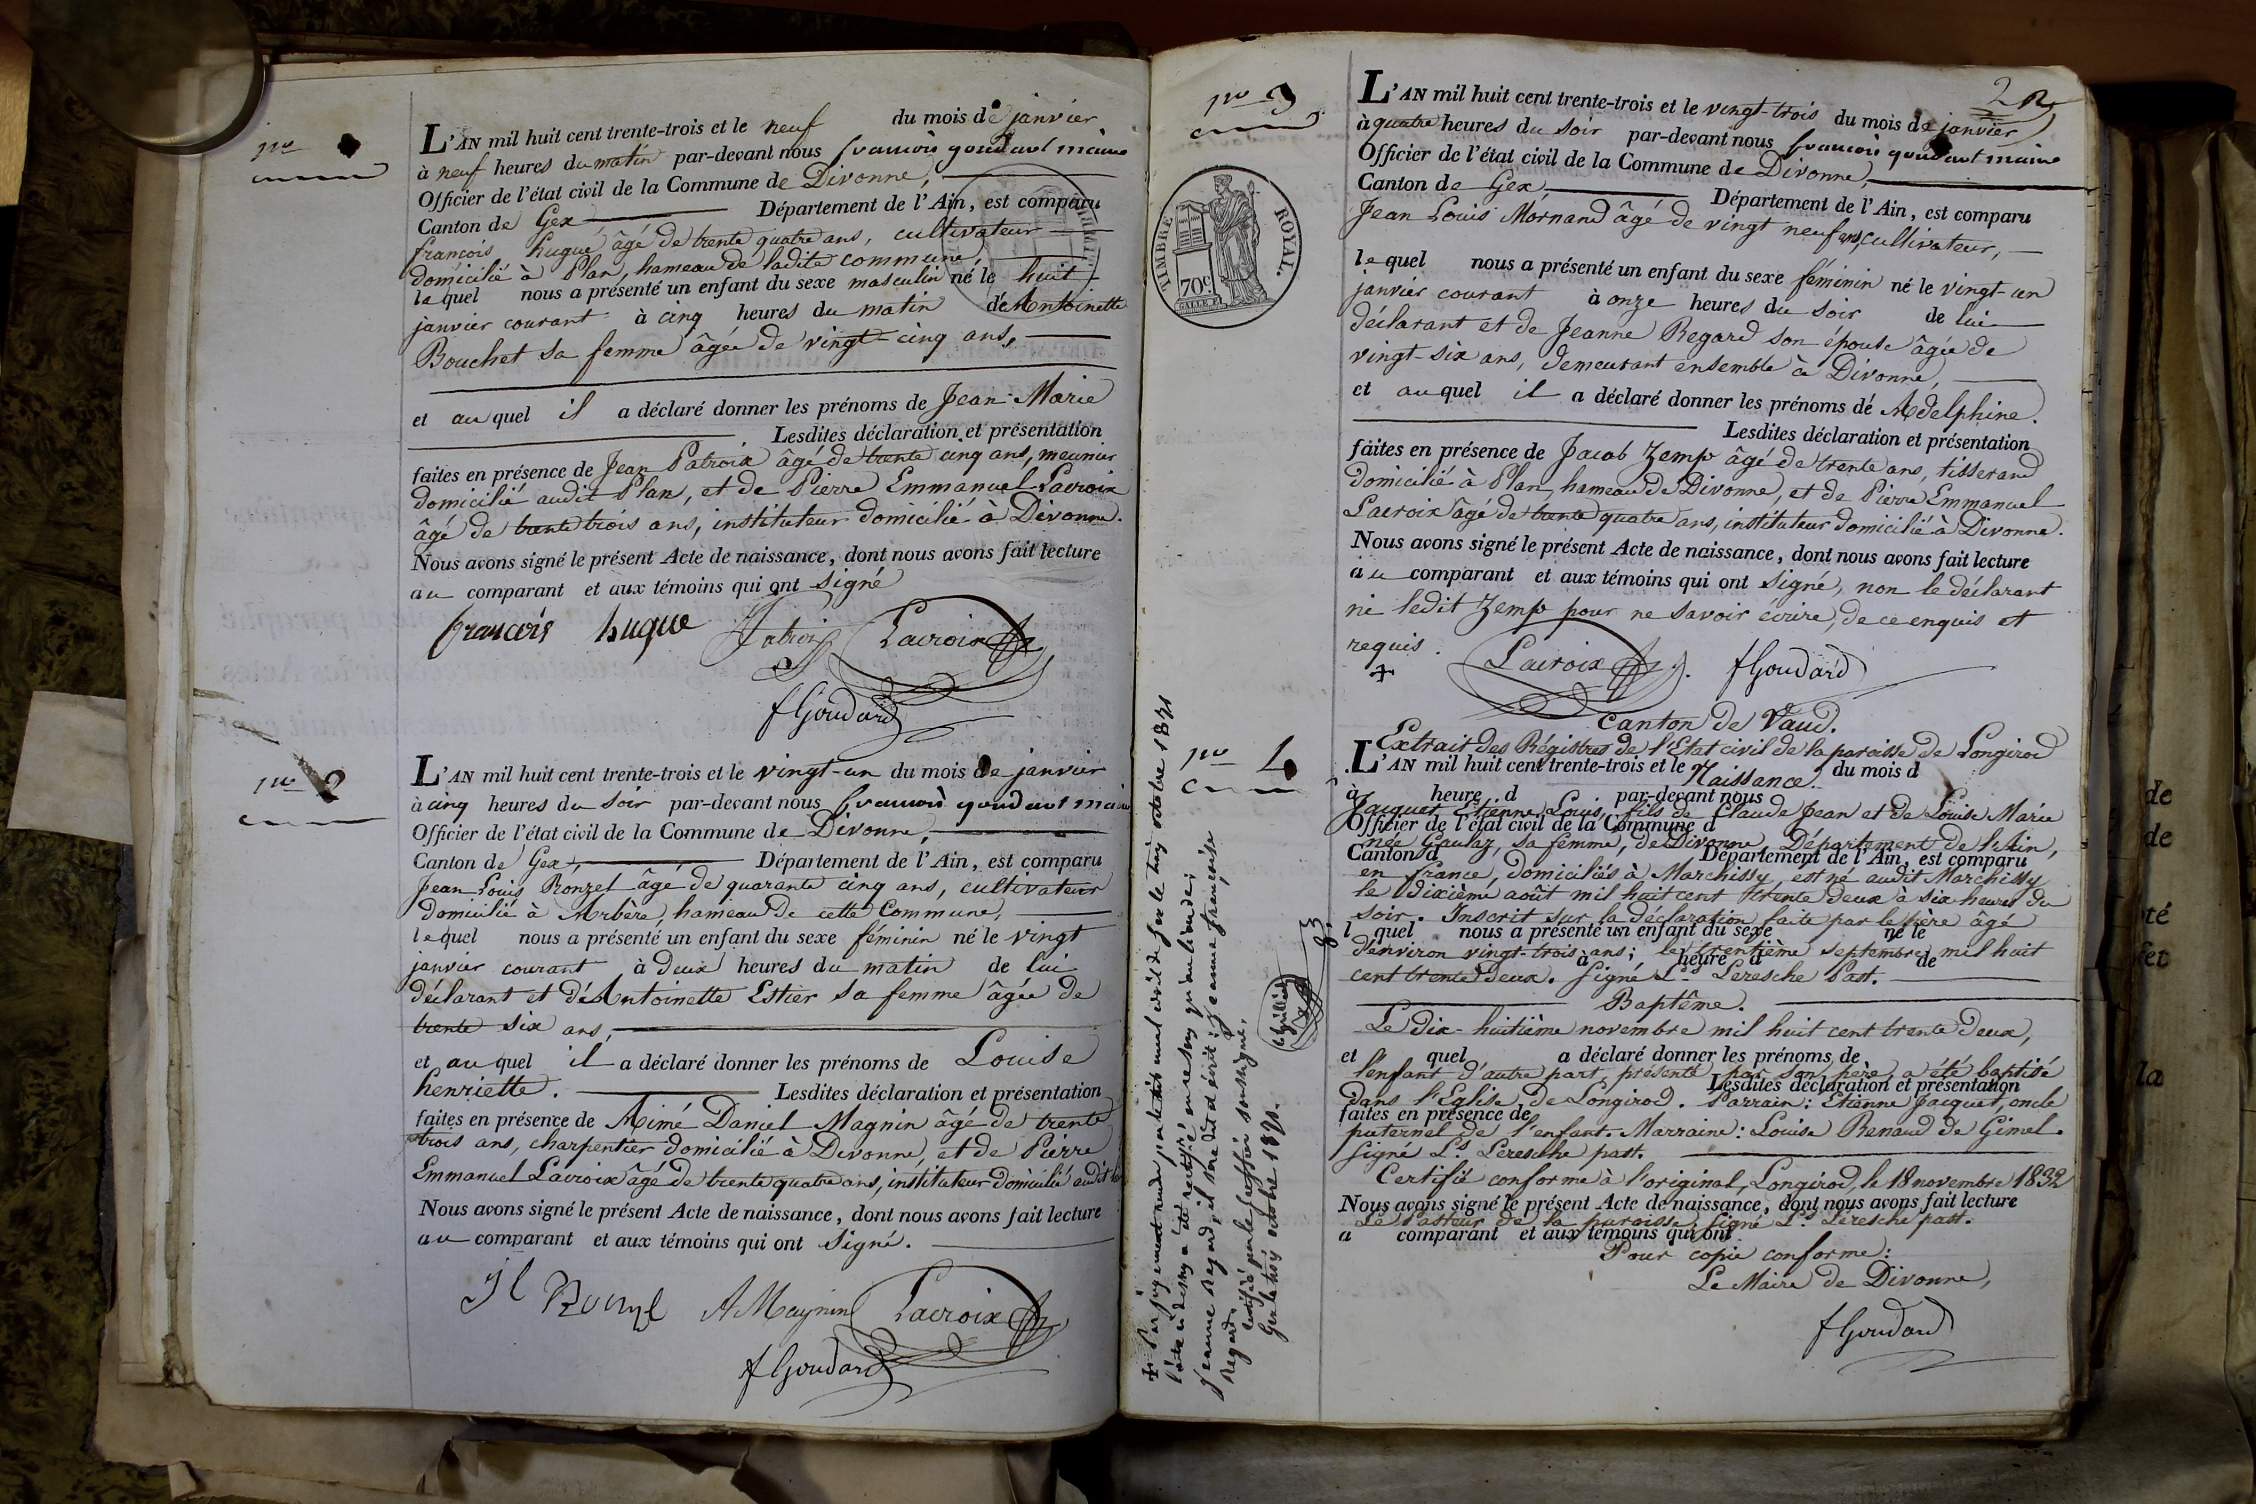 nº
L'AN mil huit cent trente-trois et le neuf du mois de janvier
à neuf heures du matin par-devant nous françois goudard maire
Officier de l'état civil de la Commune de Divonne,
Canton de Gex Département de l'Ain, est comparu
françois hugue âgé de trente quatre ans, cultivateur
domicilié à Plan, hameau de ladite commune,
lequel nous a présenté un enfant du sexe masculin né le huit
janvier courant à cinq heures du matin d'Antoinette
Bouchet sa femme âgée de vingt-cinq ans,
et auquel il a déclaré donner les prénoms de Jean Marie
Lesdites déclaration et présentation
faites en présence de Jean Patroix âgé de trente cinq ans, meunier
domicilié audit Plan, et de Pierre Emmanuel Lacroix
âgé de trente trois ans, instituteur domicilié à Divonne.
Nous avons signé le présent Acte de naissance, dont nous avons fait lecture
au comparant et aux témoins qui ont signé
françois hugue Patroix Lacroix
f Goudard
nº 2
L'AN mil huit cent trente-trois et le vingt-un du mois de janvier
à cinq heures du soir par-devant nous françois goudard maire
Officier de l'état civil de la Commune de Divonne,
Canton de Gex, Département de l'Ain, est comparu
Jean Louis Ronzel âgé de quarante cinq ans, cultivateur
domicilié à Arbère, hameau de cette Commune,
lequel nous a présenté un enfant du sexe féminin né le vingt
janvier courant à deux heures du matin de lui
déclarant et d'Antoinette Estier sa femme âgée de
trente six ans,
et auquel il a déclaré donner les prénoms de Louise
henriette. Lesdites déclaration et présentation
faites en présence de Aimé Daniel Magnin âgé de trente
trois ans, charpentier domicilié à Divonne, et de Pierre
Emmanuel Lacroix âgé de trente quatre ans, instituteur domicilié audit
Nous avons signé le présent Acte de naissance, dont nous avons fait lecture
au comparant et aux témoins qui ont signé.
A Magnin Lacroix
f Goudard
2
nº 3
TIMBRE ROYAL.
70c.
L'AN mil huit cent trente-trois et le vingt-trois du mois de janvier
à quatre heures du soir par-devant nous françois goudard maire
Officier de l'état civil de la Commune de Divonne,
Canton de Gex, Département de l'Ain, est comparu
Jean Louis Mornand âgé de vingt neuf ans, cultivateur,
lequel nous a présenté un enfant du sexe féminin né le vingt-un
janvier courant à onze heures du soir de lui
déclarant et de Jeanne Regard son épouse âgée de
vingt-six ans, demeurant ensemble à Divonne,
et auquel il a déclaré donner les prénoms de Adelphine.
Lesdites déclaration et présentation
faites en présence de Jacob Zemp âgé de trente ans, tisserand
domicilié à Plan, hameau de Divonne, et de Pierre Emmanuel
Lacroix âgé de trente quatre ans, instituteur domicilié à Divonne.
Nous avons signé le présent Acte de naissance, dont nous avons fait lecture
au comparant et aux témoins qui ont signé, non le déclarant
ni ledit Zemp pour ne savoir écrire, de ce enquis et
requis.
Lacroix f Goudard
+ Par jugement rendu par le tribunal civil de Gex le trois octobre 1871
l'acte ci dessus a été rectifié en ce sens qu'au lieu de:
Jeanne Regard, il soit dit et écrit: Jeanne françoise
Regard.
certifié par le greffier soussigné.
Gex le trois octobre 1871.
nº 4
Canton de Vaud.
Extrait des Régistres de l'Etat civil de la paroisse de Longirod
L'AN mil huit cent trente-trois et le du mois d
Naissance.
à heure d par-devant nous
Jacques Etienne Louis, fils de Claude Jean et de Louise Marie
Officier de l'état civil de la Commune d
née Gaulaz, sa femme, de Divonne, Département de l'Ain,
Canton d Département de l'Ain, est comparu
en france, domiciliés à Marchissy, est né audit Marchissy
le dixième août mil huit cent trente deux à six heures du
soir. Inscrit sur la déclaration faite par le père âgé
l quel nous a présenté un enfant du sexe né le
d'environ vingt-trois ans; le trentième septembre mil huit
à heure d de
cent trente deux. Signé Ls Leresche Past.
Baptême.
Le dix-huitième novembre mil huit cent trente deux,
et quel a déclaré donner les prénoms de
l'enfant d'autre part, présenté par son père, a été baptisé
Lesdites déclaration et présentation
dans l'Eglise de Longirod. Parrain: Etienne Jacquet, oncle
faites en présence de
paternel de l'enfant. Marraine: Louise Renaud de Gimel.
Signé Ls Leresche past.
Certifié conforme à l'original, Longirod, le 18 novembre 1832
Nous avons signé le présent Acte de naissance, dont nous avons fait lecture
Le Pasteur de la paroisse, signé Ls Leresche past.
a comparant et aux témoins qui ont
Pour copie conforme:
Le Maire de Divonne,
f Goudard
de
de
té
et
la